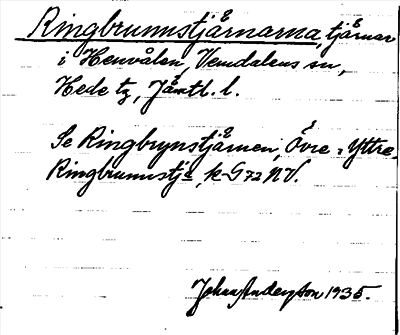 Ringbrunnstjärnarna, tjärnar
i Henvålen, Vemdalens sn,
Hede tg, Jämtl. l.
Se Ringbrynstjärnen, Övre - Yttre
Ringbrunnstjä, k G 72 NV.
Johan Anderzon 1935.